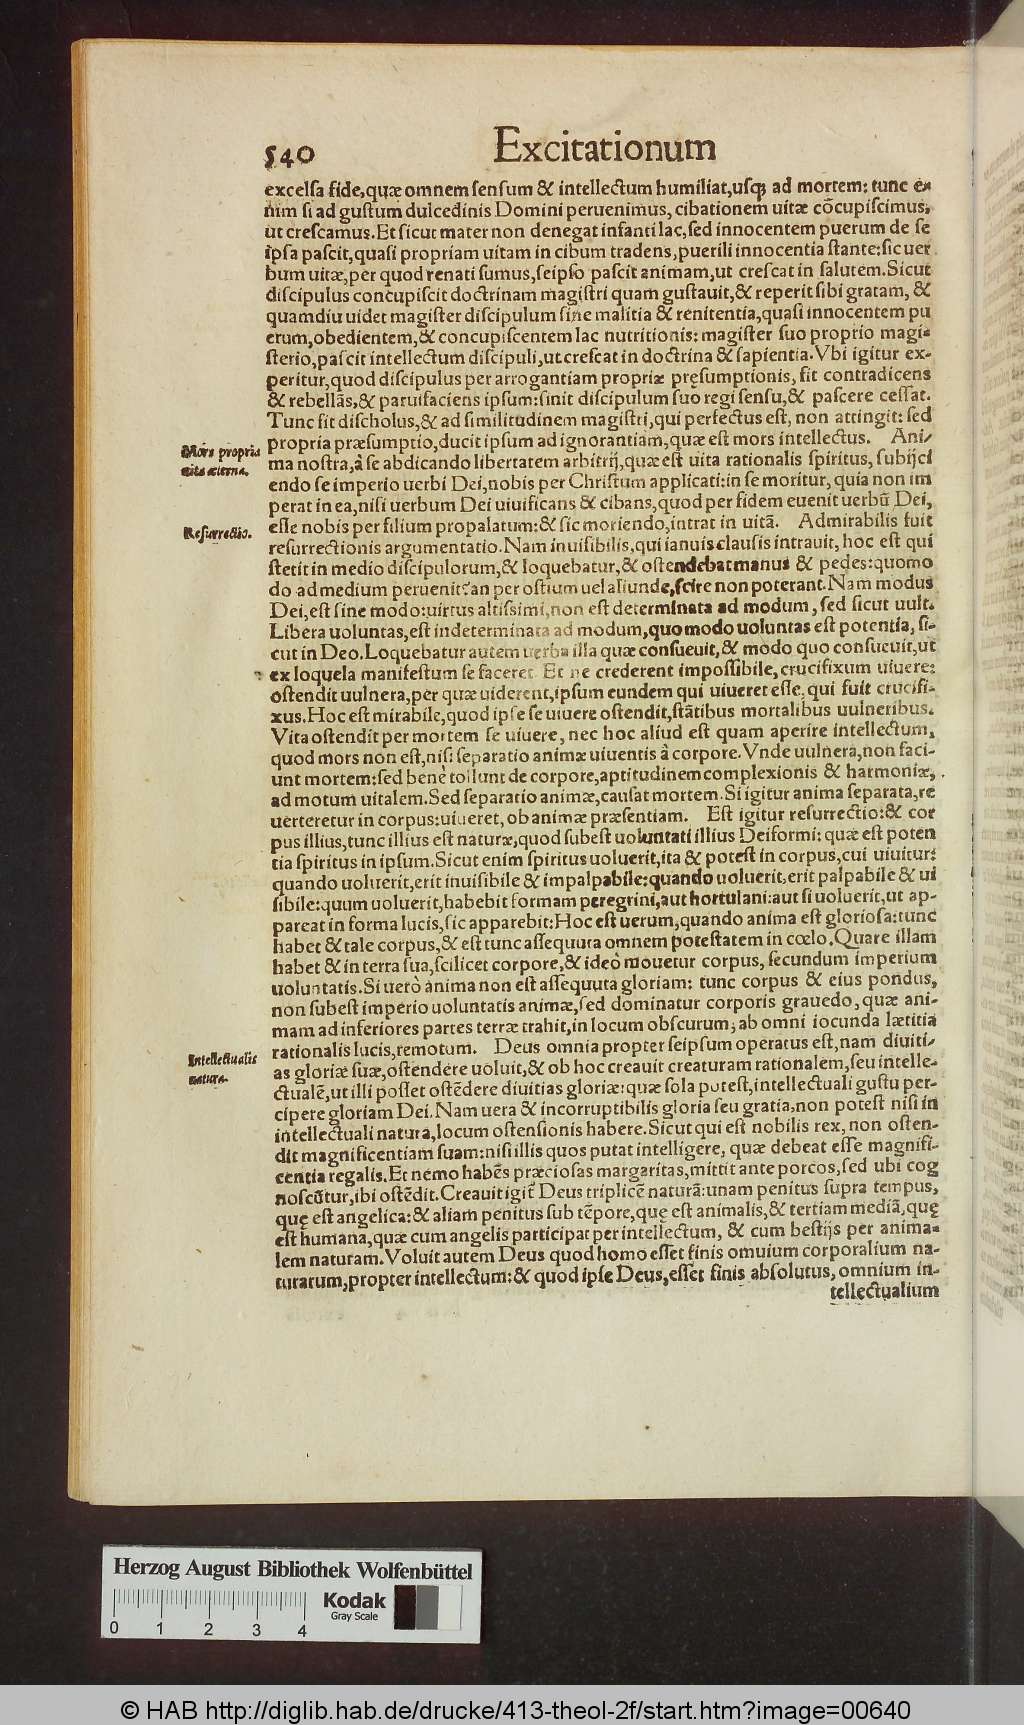 540 Excitationum
excelsa fide, quæ omnem sensum & intellectum humiliat, usq; ad mortem: tunc e-
nim si ad gustum dulcedinis Domini peruenimus, cibationem uitæ cōcupiscimus,
ut crescamus. Et sicut mater non denegat infanti lac, sed innocentem puerum de se
ipsa pascit, quasi propriam uitam in cibum tradens, puerili innocentia stante: sic uer
bum uitæ, per quod renati sumus, seipso pascit animam, ut crescat in salutem. Sicut
discipulus concupiscit doctrinam magistri quam gustauit, & reperit sibi gratam, &
quamdiu uidet magister discipulum sine malitia & renitentia, quasi innocentem pu
erum, obedientem, & concupiscentem lac nutritionis: magister suo proprio magi-
sterio, pascit intellectum discipuli, ut crescat in doctrina & sapientia. Vbi igitur ex-
peritur, quod discipulus per arrogantiam propriæ pręsumptionis, fit contradicens
& rebellās, & paruifaciens ipsum: sinit discipulum suo regi sensu, & pascere cessat.
Tunc fit discholus, & ad similitudinem magistri, qui perfectus est, non attingit: sed
propria præsumptio, ducit ipsum ad ignorantiam, quæ est mors intellectus. Ani-
Mors propria
uita æterna.
ma nostra, à se abdicando libertatem arbitrij, quæ est uita rationalis spiritus, subijci
endo se imperio uerbi Dei, nobis per Christum applicati: in se moritur, quia non im
perat in ea, nisi uerbum Dei uiuificans & cibans, quod per fidem euenit uerbū Dei,
esse nobis per filium propalatum: & sic moriendo, intrat in uitā. Admirabilis fuit
Resurrectio.
resurrectionis argumentatio. Nam inuisibilis, qui ianuis clausis intrauit, hoc est qui
stetit in medio discipulorum, & loquebatur, & ostendebat manus & pedes: quomo
do ad medium peruenit: an per ostium uel aliunde, scire non poterant. Nam modus
Dei, est sine modo: uirtus altissimi, non est determinata ad modum, sed sicut uult.
Libera uoluntas, est indeterminata ad modum, quomodo uoluntas est potentia, si-
cut in Deo. Loquebatur autem uerba illa quæ consueuit, & modo quo consueuit, ut
ex loquela manifestum se faceret. Et ne crederent impossibile, crucifixum uiuere:
ostendit uulnera, per quæ uiderent, ipsum eundem qui uiueret esse, qui fuit crucifi-
xus. Hoc est mirabile, quod ipse se uiuere ostendit, stātibus mortalibus uulneribus.
Vita ostendit per mortem se uiuere, nec hoc aliud est quam aperire intellectum,
quod mors non est, nisi separatio animæ uiuentis à corpore. Vnde uulnera, non faci-
unt mortem: sed benè tollunt de corpore, aptitudinem complexionis & harmoniæ,
ad motum uitalem. Sed separatio animæ, causat mortem. Si igitur anima separata, re
uerteretur in corpus: uiueret, ob animæ præsentiam. Est igitur resurrectio: & cor
pus illius, tunc illius est naturæ, quod subest uoluntati illius Deiformi: quæ est poten
tia spiritus in ipsum. Sicut enim spiritus uoluerit, ita & potest in corpus, cui uiuitur:
quando uoluerit, erit inuisibile & impalpabile: quando uoluerit, erit palpabile & ui
sibile: quum uoluerit, habebit formam peregrini, aut hortulani: aut si uoluerit, ut ap-
pareat in forma lucis, sic apparebit: Hoc est uerum, quando anima est gloriosa: tunc
habet & tale corpus, & est tunc assequuta omnem potestatem in cœlo. Quare illam
habet & in terra sua, scilicet corpore, & ideò mouetur corpus, secundum imperium
uoluntatis. Si uerò anima non est assequuta gloriam: tunc corpus & eius pondus,
non subest imperio uoluntatis animæ, sed dominatur corporis grauedo, quæ ani-
mam ad inferiores partes terræ trahit, in locum obscurum, ab omni iocunda lætitia
rationalis lucis, remotum. Deus omnia propter seipsum operatus est, nam diuiti-
Intellectualis
natura.
as gloriæ suæ, ostendere uoluit, & ob hoc creauit creaturam rationalem, seu intelle-
ctualē, ut illi posset ostēdere diuitias gloriæ: quæ sola potest, intellectuali gustu per-
cipere gloriam Dei. Nam uera & incorruptibilis gloria seu gratia, non potest nisi in
intellectuali natura, locum ostensionis habere. Sicut qui est nobilis rex, non osten-
dit magnificentiam suam: nisi illis quos putat intelligere, quæ debeat esse magnifi-
centia regalis. Et nemo habēs præciosas margaritas, mittit ante porcos, sed ubi cog
noscūtur, ibi ostēdit. Creauit igit̃ Deus triplicē naturā: unam penitus supra tempus,
quę est angelica: & aliam penitus sub tēpore, quę est animalis, & tertiam mediā, quę
est humana, quæ cum angelis participat per intellectum, & cum bestijs per anima-
lem naturam. Voluit autem Deus quod homo esset finis omuium corporalium na-
turarum, propter intellectum: & quod ipse Deus, esset finis absolutus, omnium in-
tellectualium
Herzog August Bibliothek Wolfenbüttel
Kodak
Gray Scale
0 1 2 3 4
© HAB http://diglib.hab.de/drucke/413-theol-2f/start.htm?image=00640